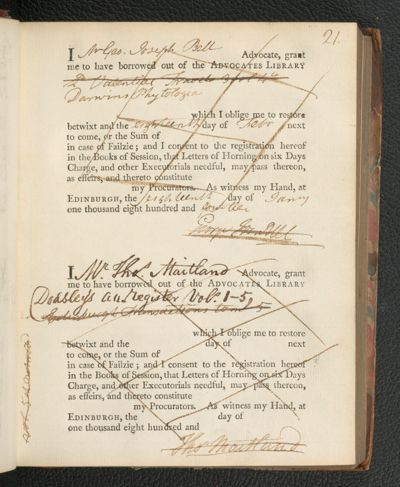 21.
I Mr Geo. Joseph Bell Advocate, grant
me to have borrowed out of the ADVOCATES LIBRARY
Ld Valentia's Travels 3 vol 4to
Darwins Phytologia
which I oblige me to restore
betwixt and the eighteenth day of Febr next
to come, or the Sum of
in case of Failzie; and I consent to the registration hereof
in the Books of Session, that Letters of Horning on six Days
Charge, and other Executorials needful, may pass thereon,
as effeirs, and thereto constitute
my Procurators. As witness my Hand, at
EDINBURGH, the eighteenth day of Janry
one thousand eight hundred and
I Mr Thos. Maitland Advocate, grant
me to have borrowed out of the ADVOCATES LIBRARY
Dodsley's an. Register Vols 1-5,
Edinburgh Transactions vol 5
which I oblige me to restore
betwixt and the day of next
to come, or the Sum of
in case of Failzie; and I consent to the registration hereof
in the Books of Session, that Letters of Horning on six Days
Charge, and other Executorials needful, may pass thereon,
as effeirs, and thereto constitute
my Procurators. As witness my Hand, at
EDINBURGH, the day of
one thousand eight hundred and
Thos Maitland